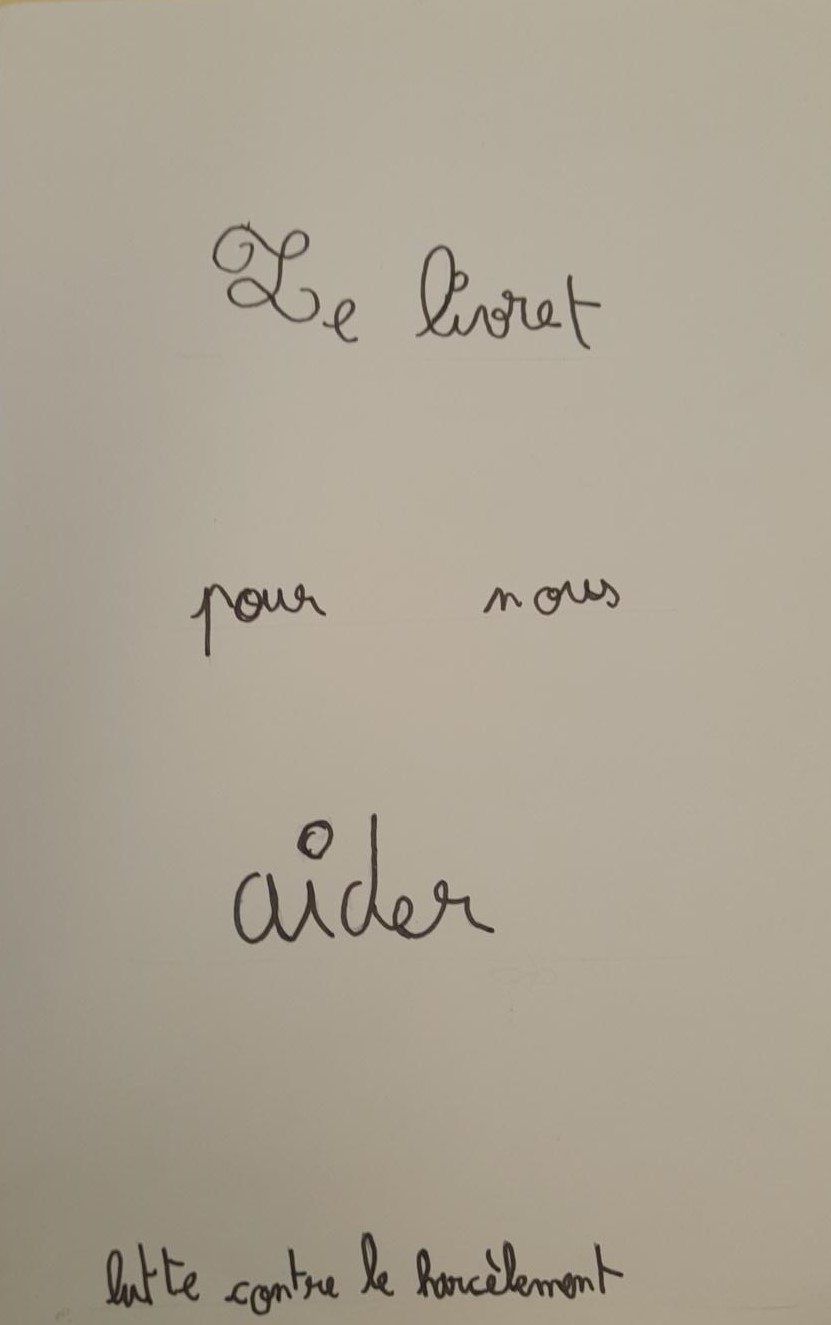 Le livret
pour nous
aider
lutte contre le harcèlement